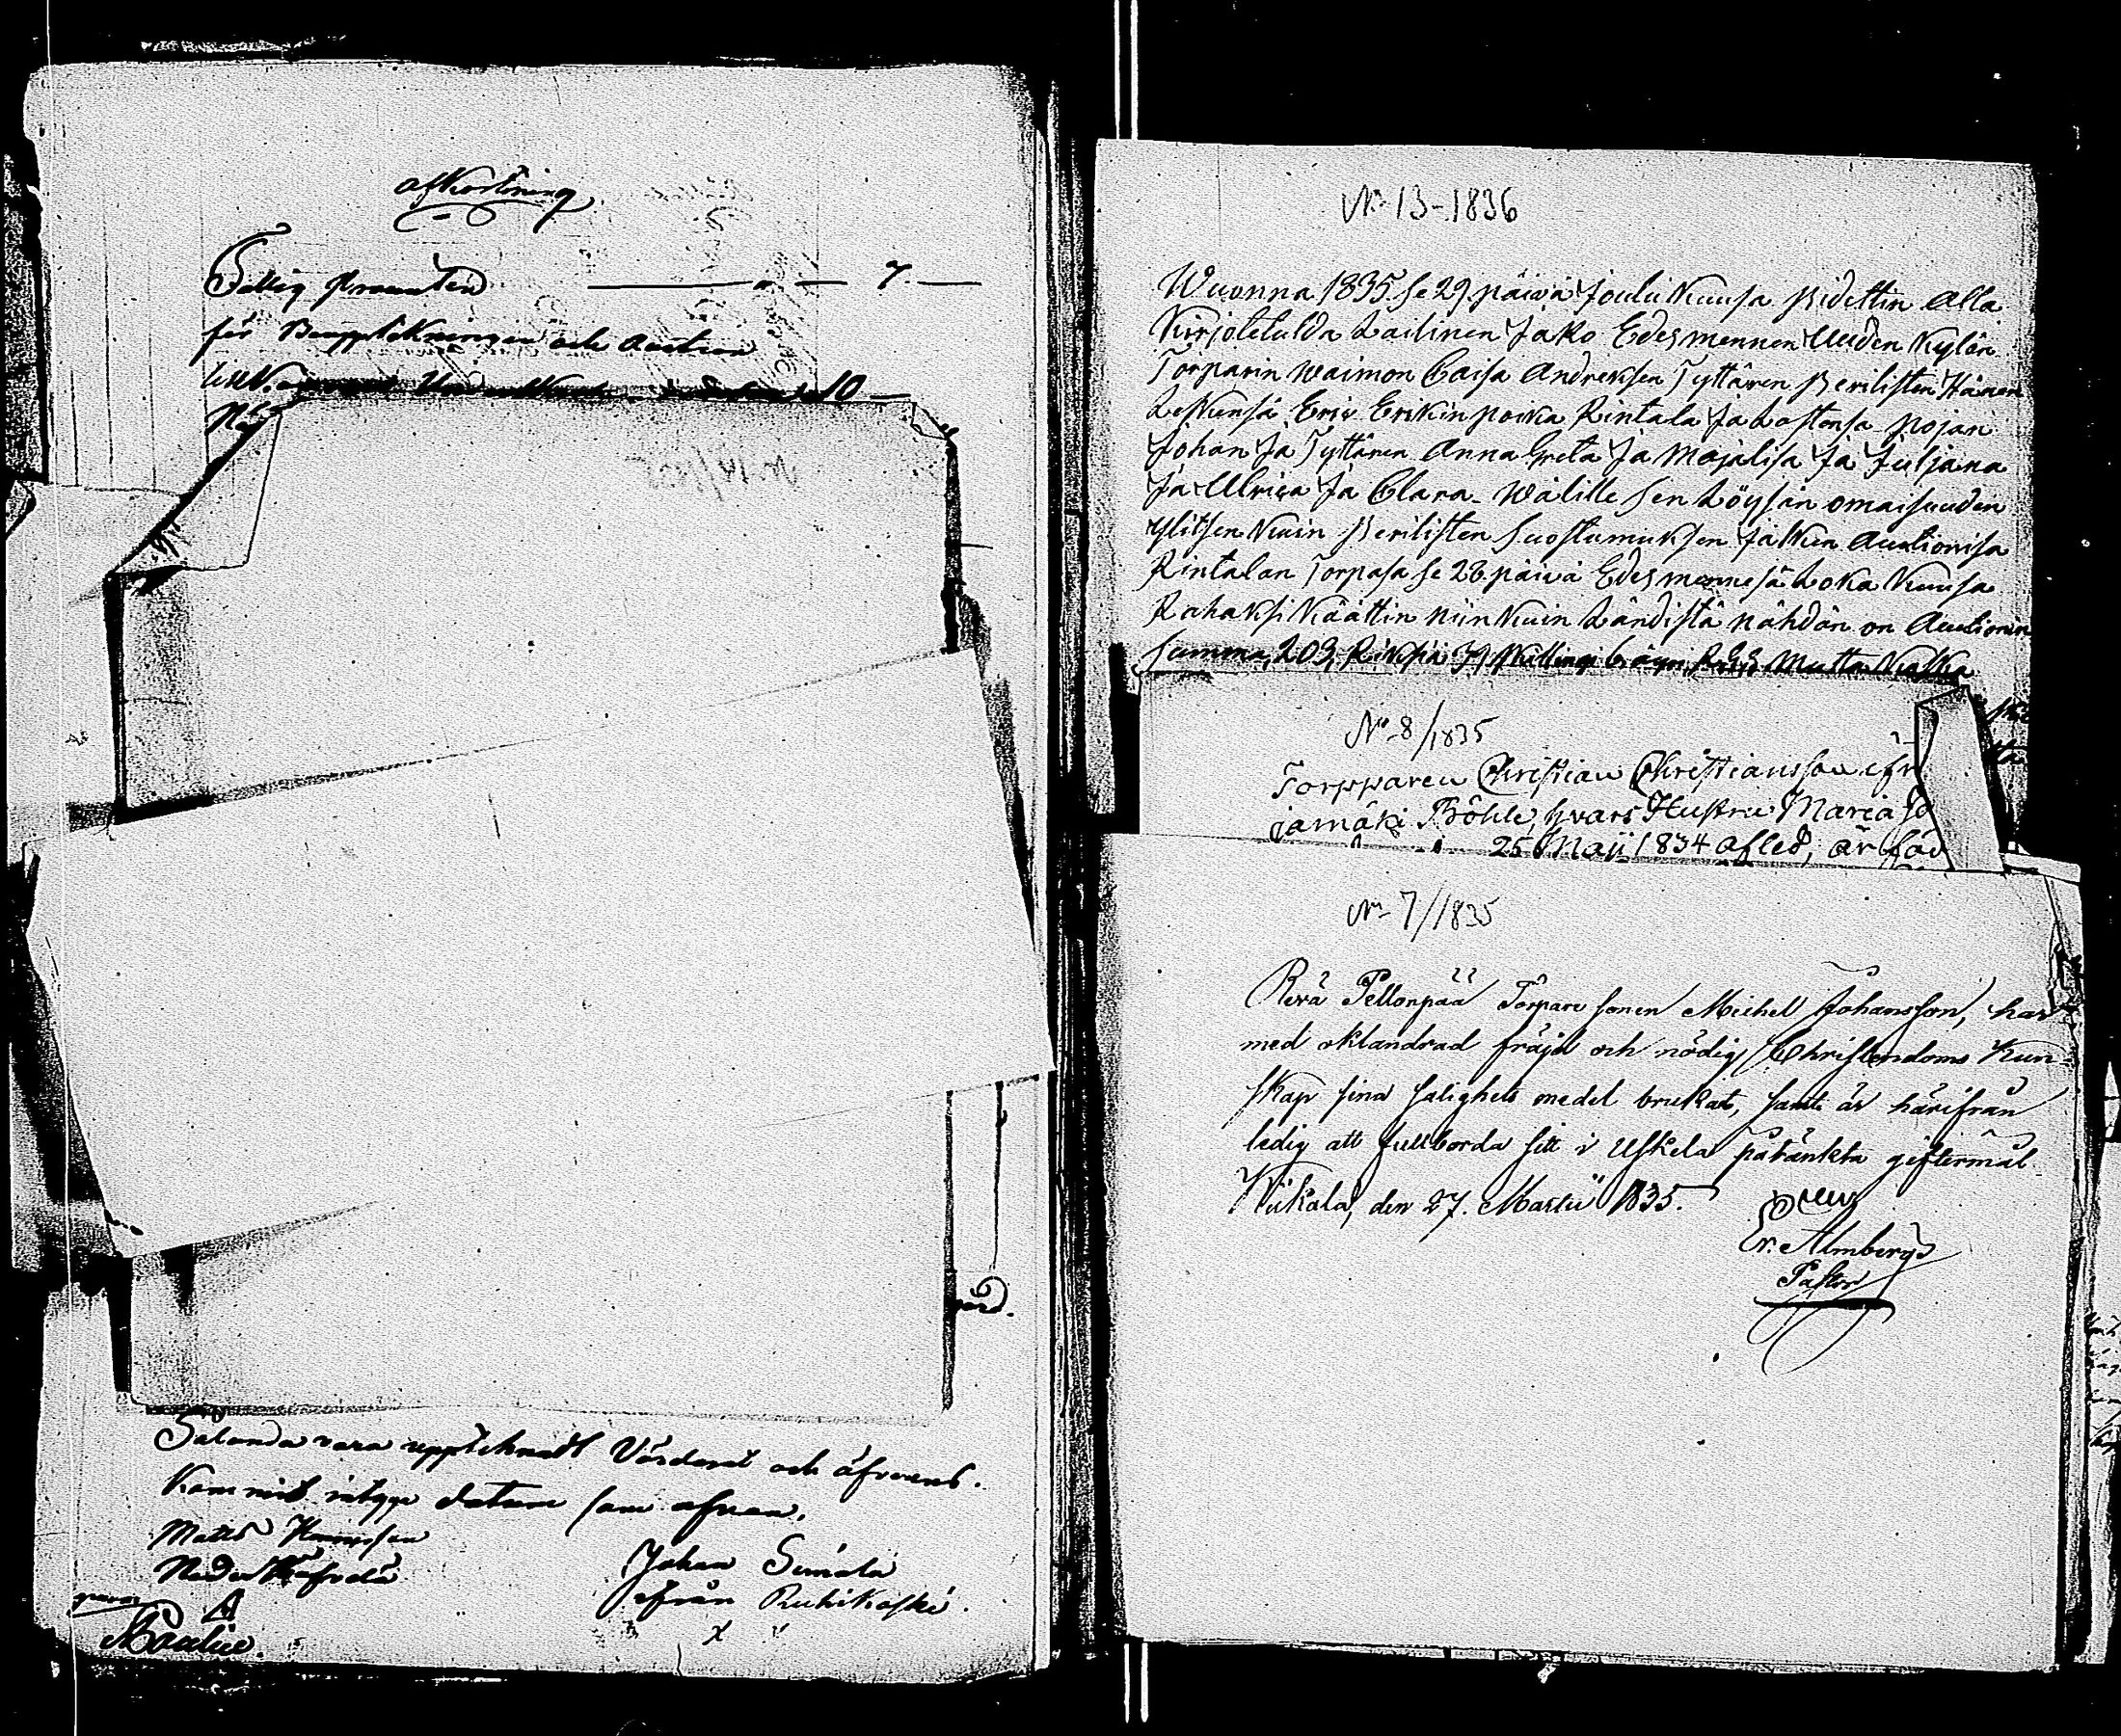 afkortning
Fattig procenten — " — 7. —
för Bouppteckningen och Auction
10 —
N 14/1835
gård.
Sålunda vara upptecknadt Värderat och öfverens-
kommit intyga datum som ofvan.
Matts
Johan Simola
ifrån Ruhikoski.
x
No 13-1836
Wuonna 1835 se 29 päivä Joulu Kuusa Pidettin alla
Kirjotetulda Lailinen Jako Edesmennen Uuden Kylän
Torparin Waimon Caisa Andreksen Tyttären Perilisten Hänen
Leskensä Eric Erikin poika Rintala Ja Lastensa Pojan
Johan Ja Tyttären Anna Greta Ja Majalisa Ja Juljana
Ja Ulrica Ja Clara Wälille sen Löysän omaisuuden
ylitsen Kuin Perilisten Suostumuksen Jälken Auctionisa
Rintalan Torpasa se 26 päivä Edesmennesä Loka Kuusa
Rahaksi Käättin niin Kuin Ländistä nähdän on Auctionin
Summa 203 Mutta Kalka
No 8/1835
Torpparen Christian Christiansson ifr
jamäki Böhle, hvars Hustru Maria
25 Maji 1834 afled, är
No 7/1835
Rerä Pellonpää Torpare sonen Michel Johansson, har
med oklandrad fräjd och nödig Christendoms Kun-
skap sina salighets medel brukat, samt är härifrån
ledig att fullborda sitt i Uskela påtänkta giftermål.
Kiikala, den 27. Martii 1835.
Er. Almberg
Pastor